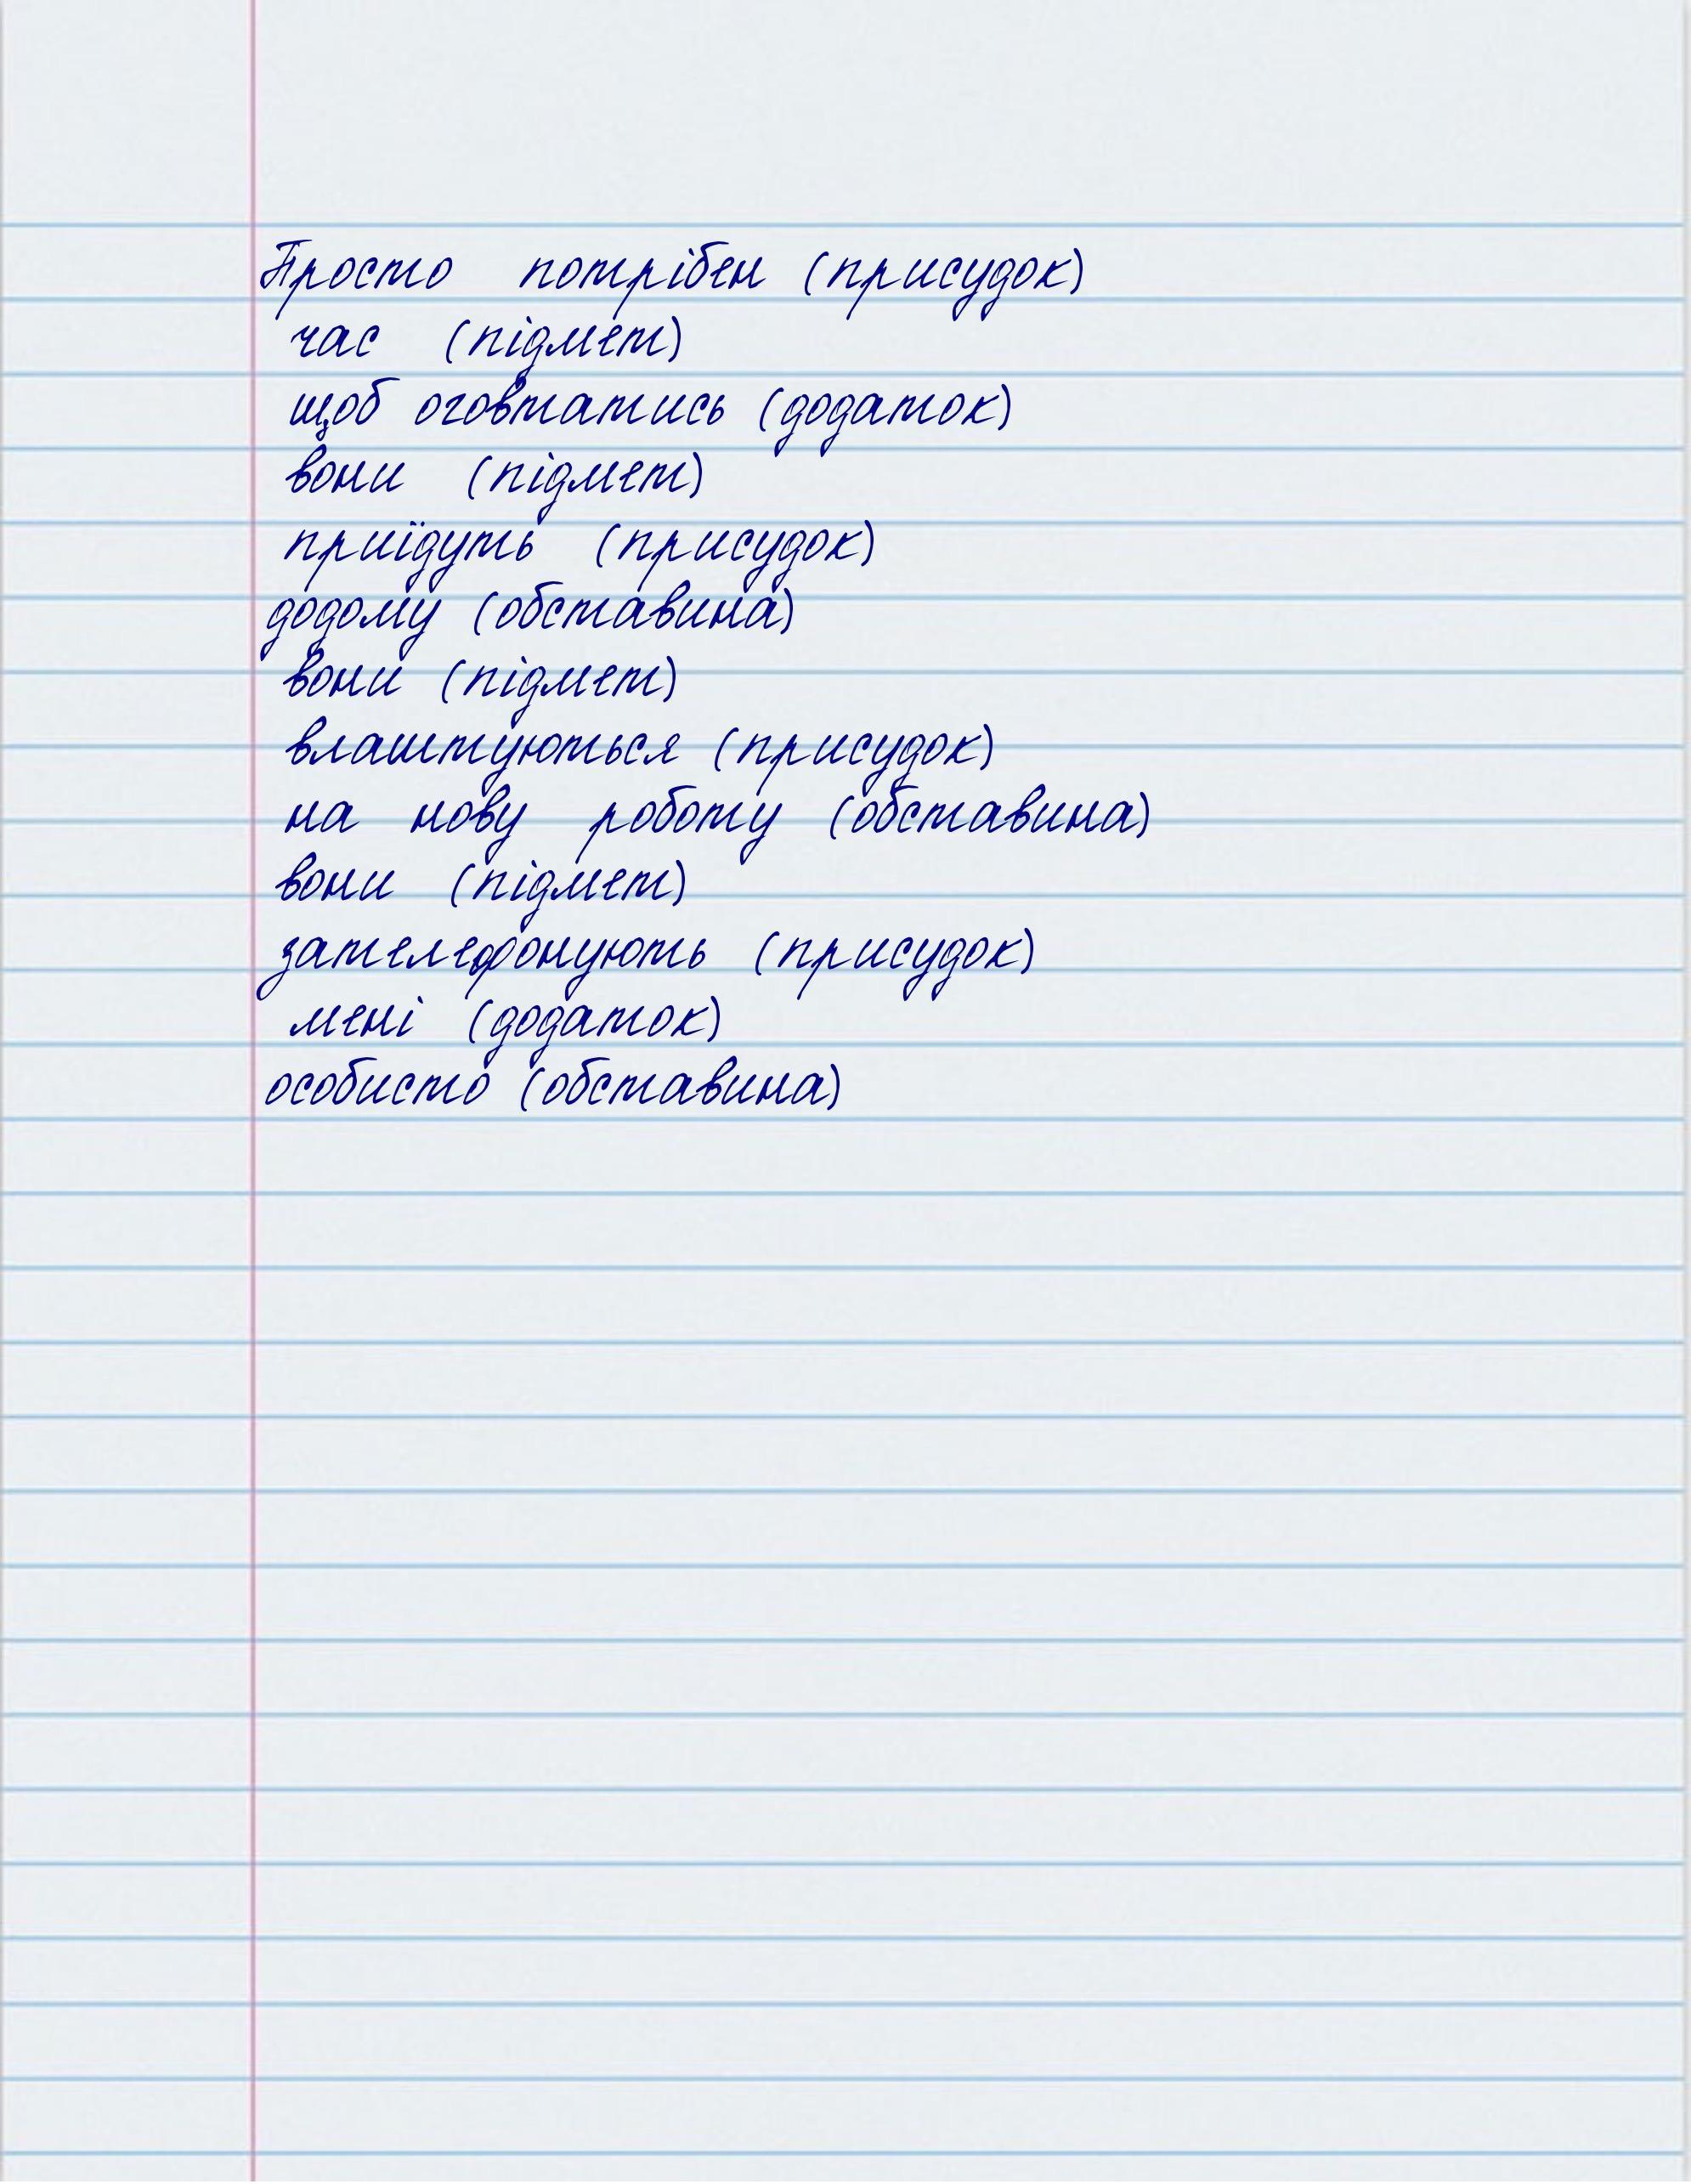 Просто потрібен (присудок)
час (підмет)
щоб оговтатись (додаток)
вони (підмет)
приїдуть (присудок)
додому (обставина)
вони (підмет)
влаштуються (присудок)
на нову роботу (обставина)
вони (підмет)
зателефонують (присудок)
мені (додаток)
особисто (обставина)